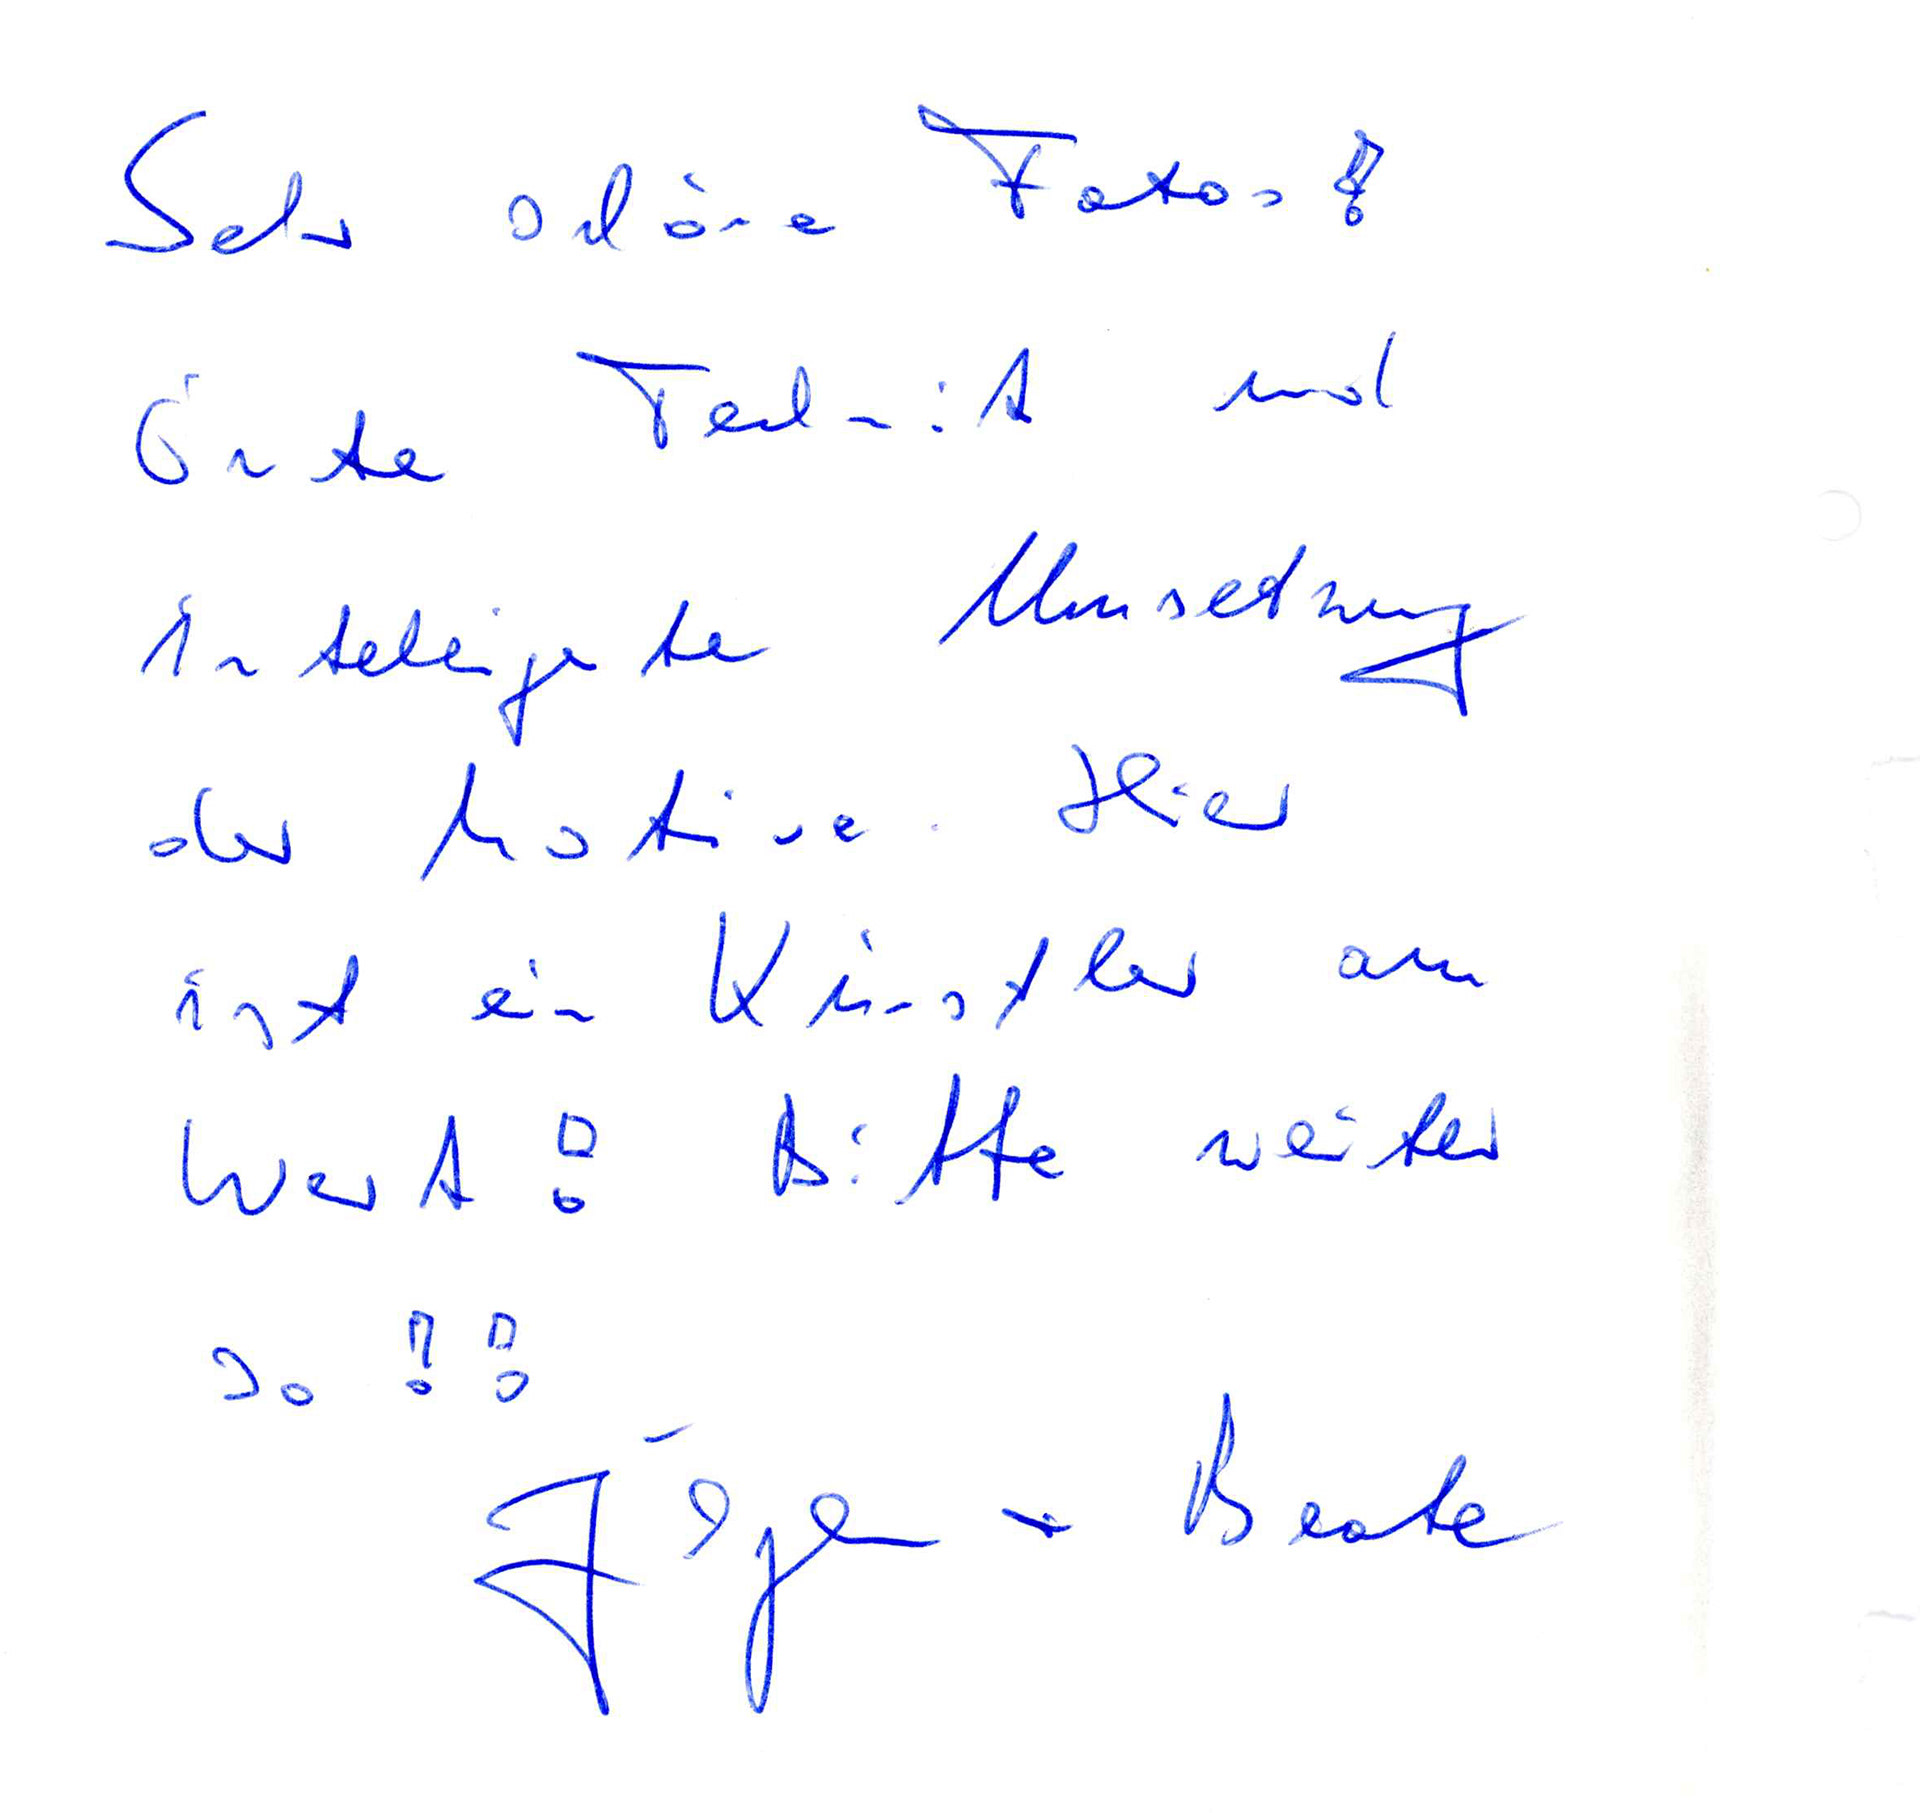 Sehr schöne Fotos!
Gute Technik und
inteligente Umsetzung
der Motive. Hier
ist ein Künstler am
Werk! Bitte weiter
so!!
Jürgen + Beate